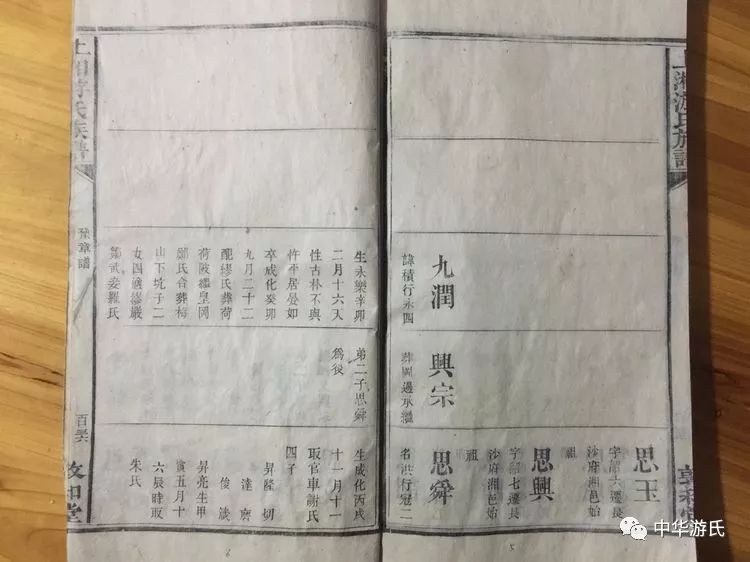 上湘游氏族譜
敦和堂
思玉
字昭六遷長
沙府湘邑始
祖
思興
字昭七遷長
沙府湘邑始
祖
九潤
諱積行永四
興宗
葬周邊承繼
思舜
名洪行冠二
生永樂辛卯
二月十六天
性古朴不與
忤平居晏如
卒成化癸卯
九月二十二
配繆氏葬荷
荷陂繼皇岡
鄒氏合葬梅
山下坑子二
女四適繆嚴
鄒武妾羅氏
弟二子思舜
為後
生成化丙戌
十一月十一
取官車謝氏
四子
昇隆
達
俊
昇亮生甲
寅五月十
六辰時取
朱氏
上湘游氏族譜
豫章譜
敦和堂
中华游氏